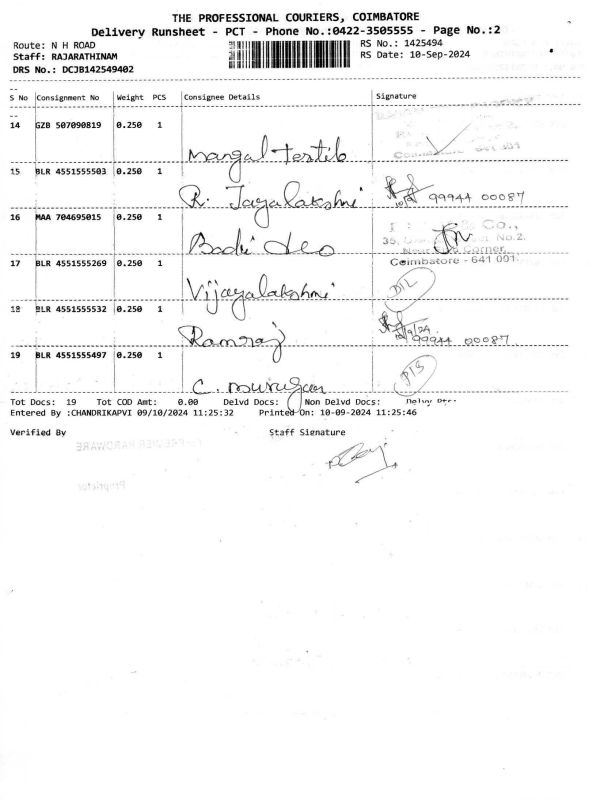 THE PROFESSIONAL COURIERS, COIMBATORE
Delivery Runsheet - PCT - Phone No.:0422-3505555 - Page No.:2
Route: N H ROAD RS No.: 1425494
Staff: RAJARATHINAM RS Date: 10-Sep-2024
DRS No.: DCJB142549402
S No Consignment No Weight PCS Consignee Details Signature
14 GZB 507090819 0.250 1
Mangal
15 BLR 4551555503 0.250 1
R. Jayalakshmi 99944 00087
16 MAA 704695015 0.250 1
Co.,
35, No.2,
Corner,
Coimbatore - 641 001.
17 BLR 4551555269 0.250 1
Vijayalakshmi
18 BLR 4551555532 0.250 1
Ramraj 10/9/24 99944 00087
19 BLR 4551555497 0.250 1
C. Murugan
Tot Docs: 19 Tot COD Amt: 0.00 Delvd Docs: Non Delvd Docs:
Entered By :CHANDRIKAPVI 09/10/2024 11:25:32 Printed On: 10-09-2024 11:25:46
Verified By Staff Signature
PREMIER HARDWARE
Proprietor